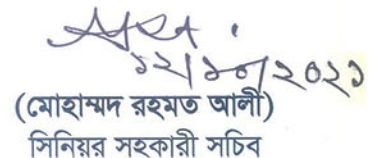 ১২/১০/২০২১
(মোহাম্মদ রহমত আলী)
সিনিয়র সহকারী সচিব